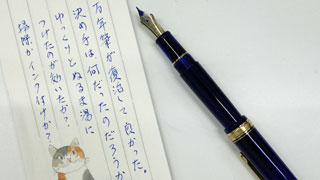 万年筆が復活して良かった。
決め手は何だったのだろうか
ゆっくりとぬるま湯に
つけたのが効いたか？
掃除かインク付けか？